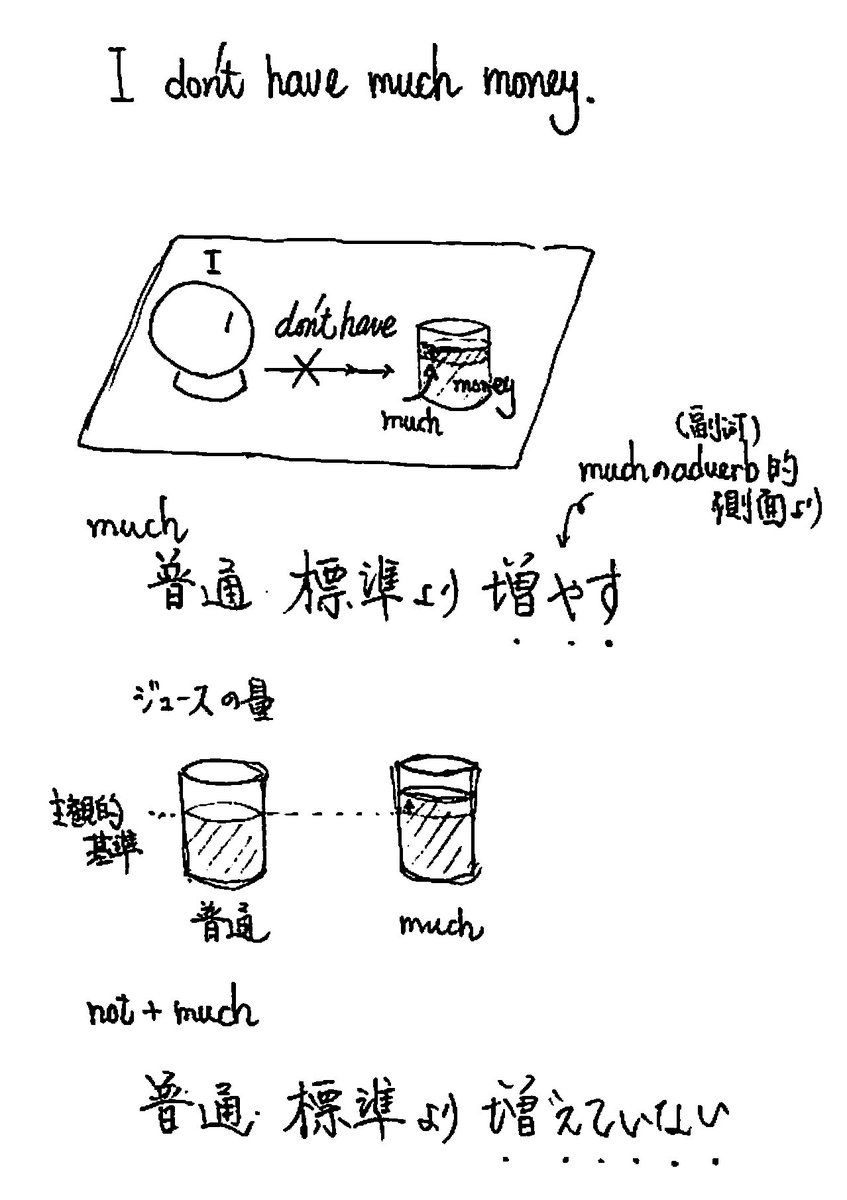 I don't have much money.
I
don't have
money
much
(副詞)
muchのadverb的
側面より
much
普通・標準より増やす
ジュースの量
主観的
基準
普通
much
not + much
普通・標準より増えていない